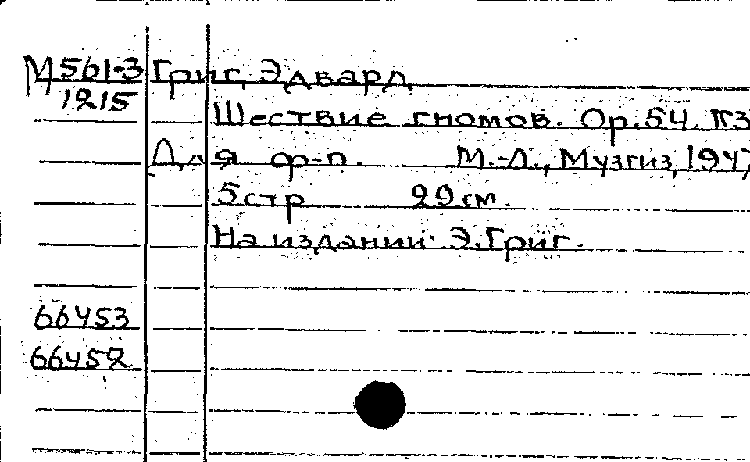 М561-3 Григ, Эдвард
1215
Шествие гномов. Ор.54. №3
Для ф-п. М.-Л., Музгиз, 1947
5 стр 29 см.
На издании: Э.Григ.
66453
66452